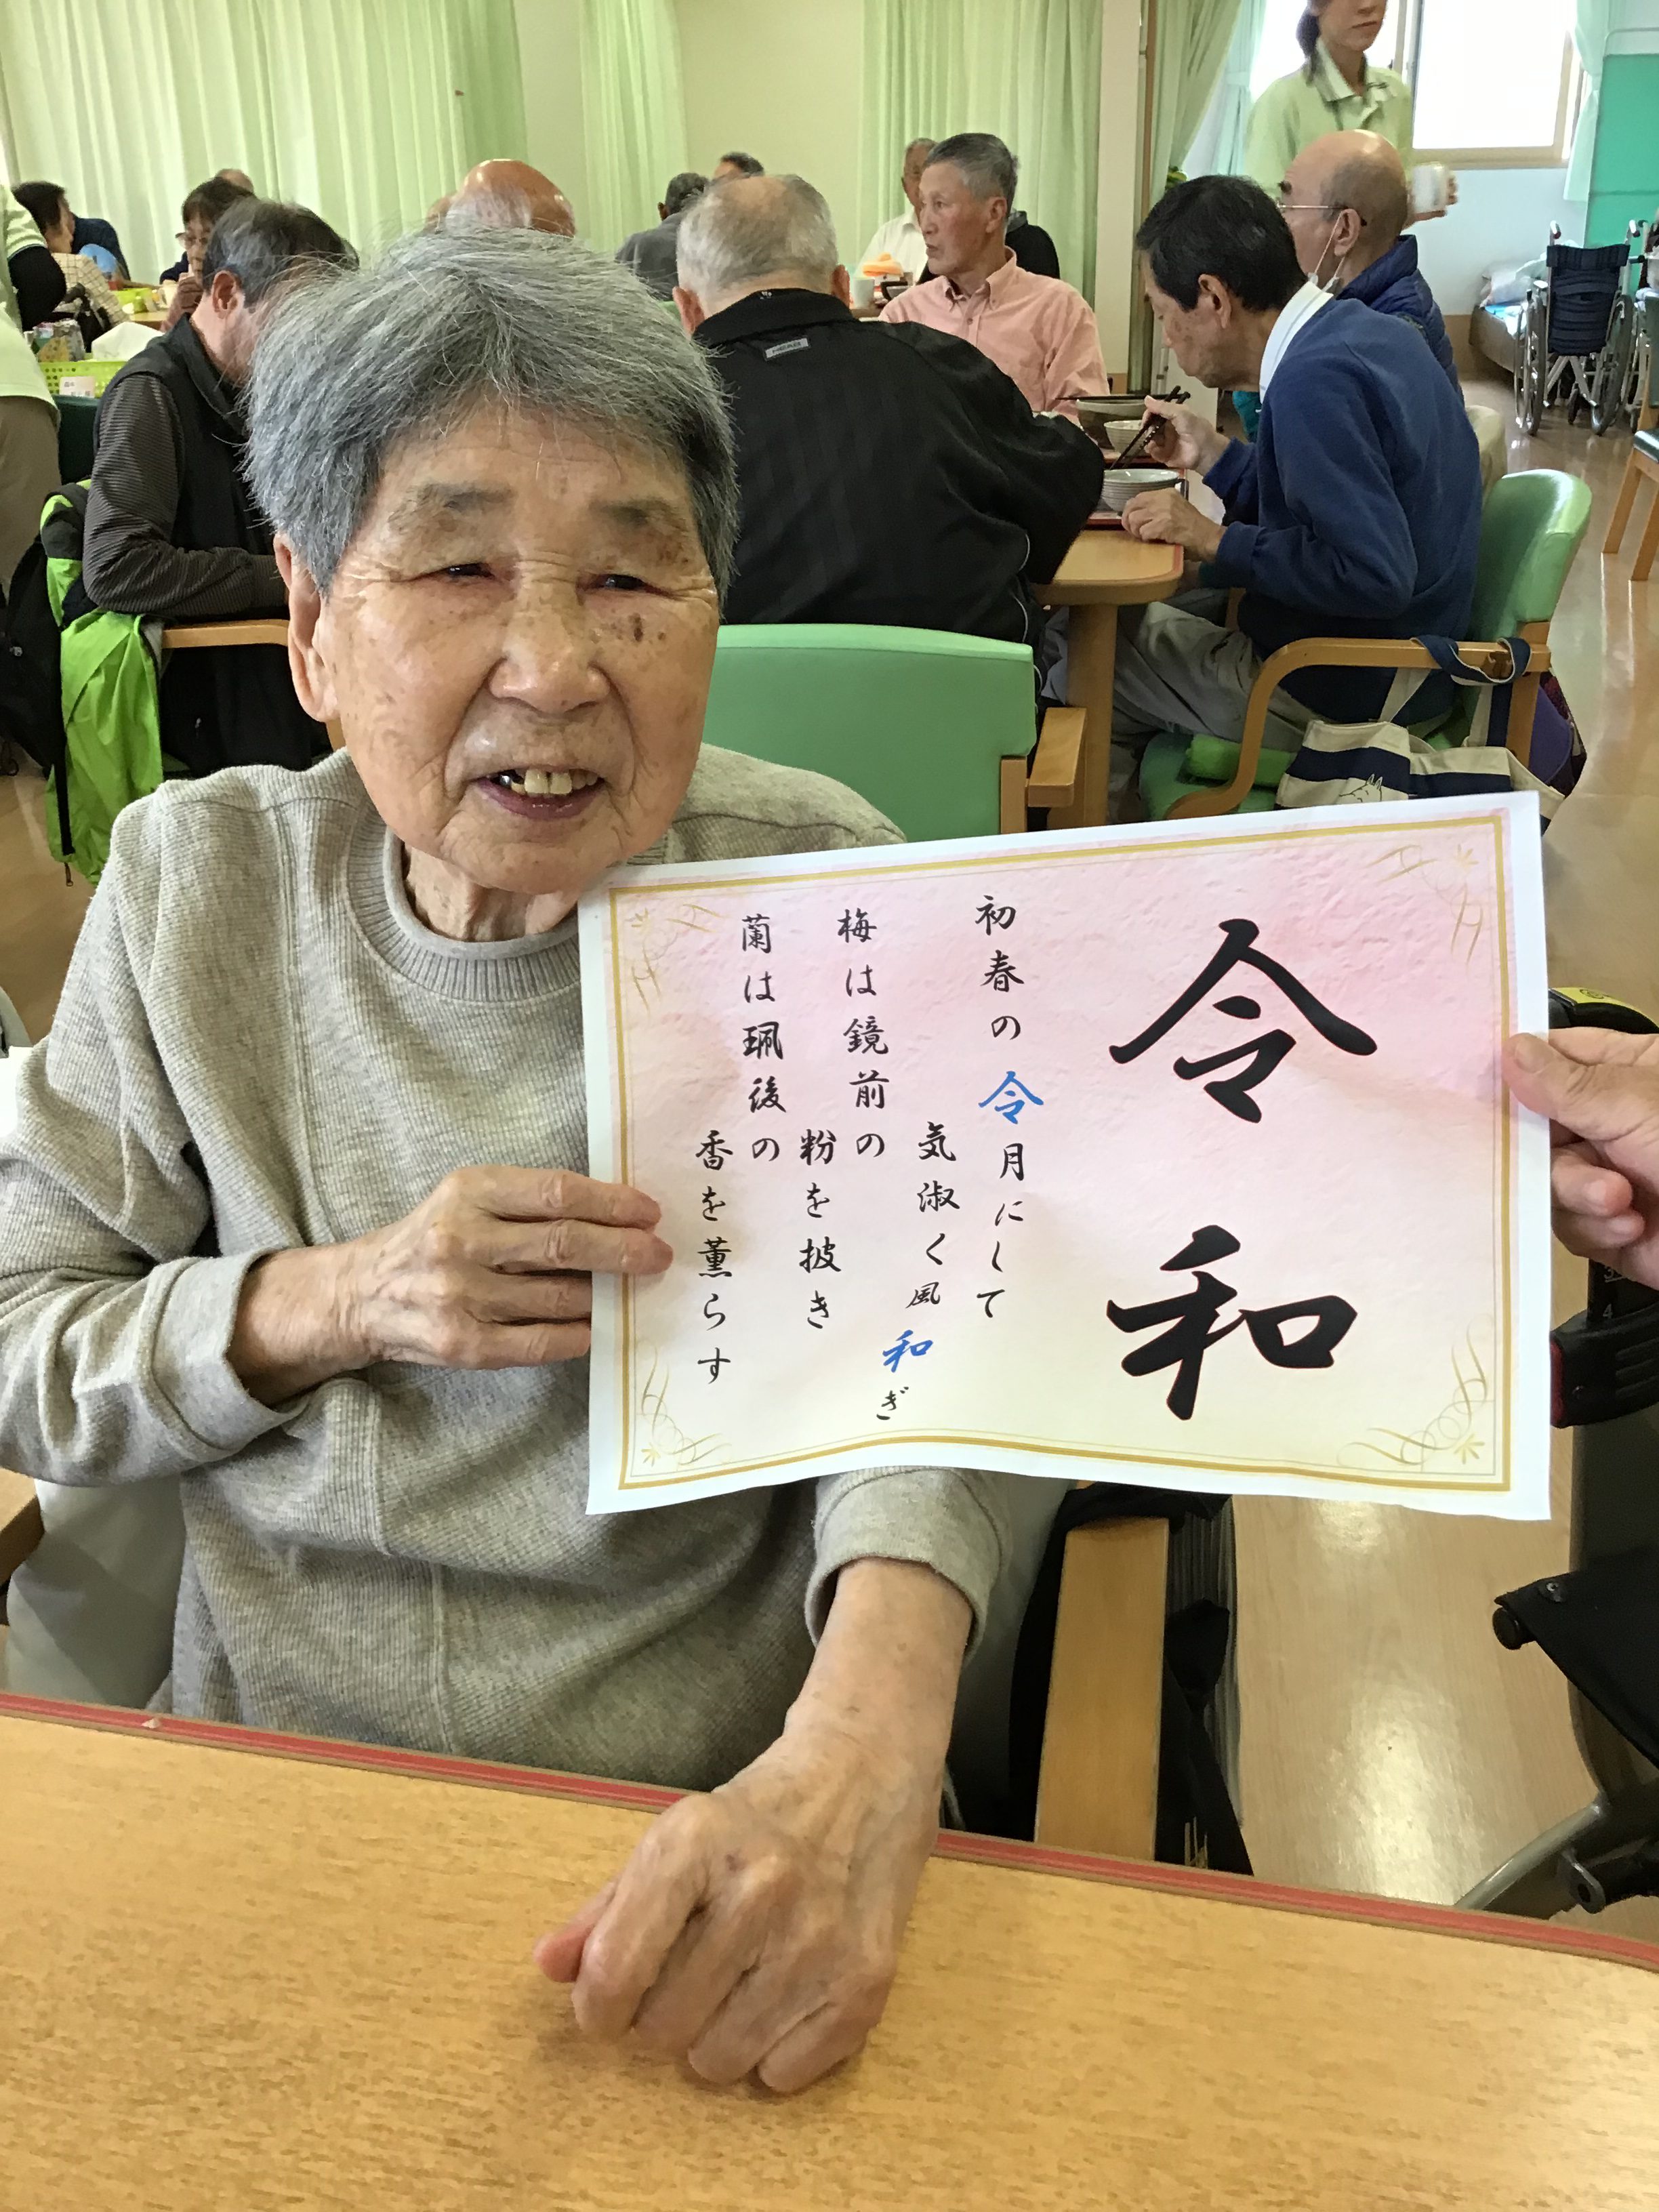 令和
初春の令月にして
気淑く風和ぎ
梅は鏡前の
粉を披き
蘭は珮後の
香を薫らす